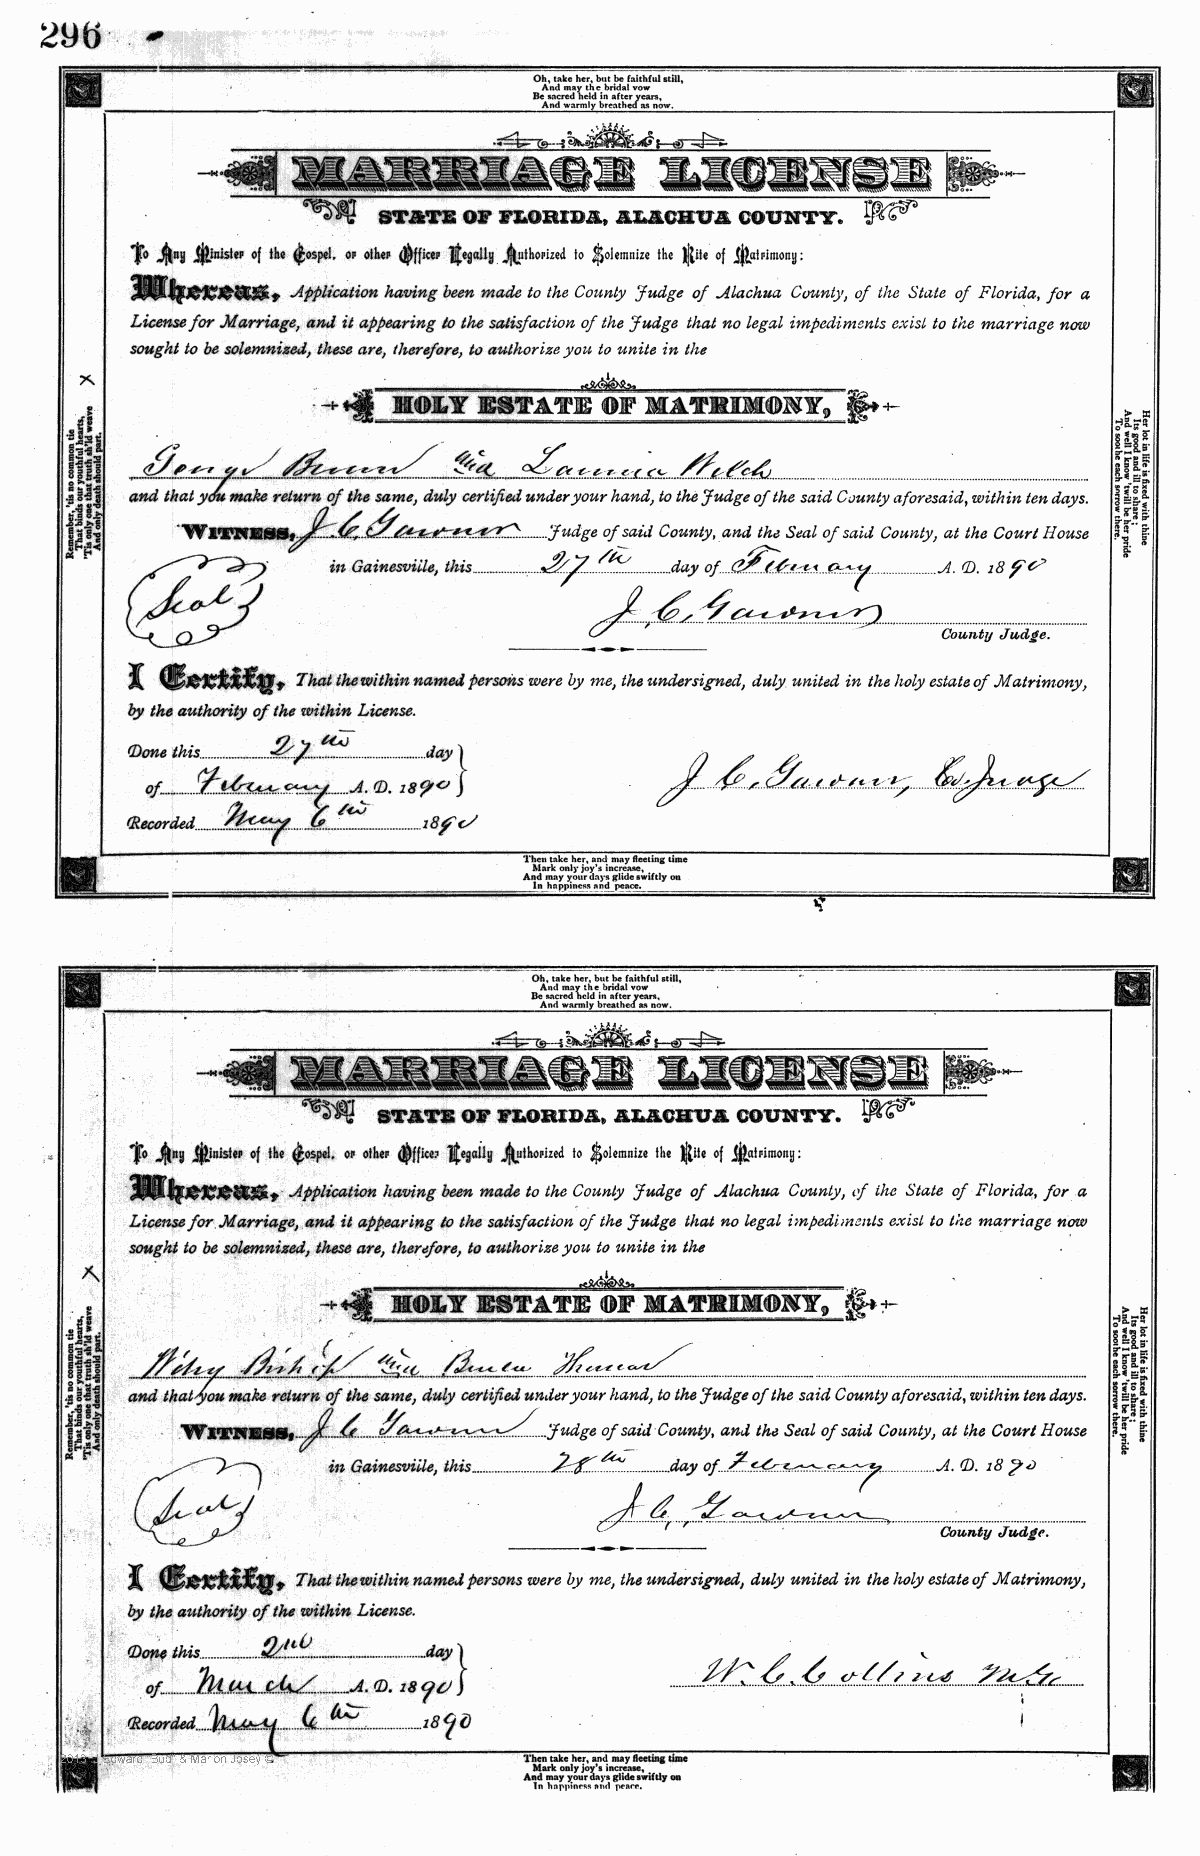 296
Oh, take her, but be faithful still,
And may the bridal vow
Be sacred held in after years,
And warmly breathed as now.
MARRIAGE LICENSE
STATE OF FLORIDA, ALACHUA COUNTY.
To Any Minister of the Gospel, or other Officer Legally Authorized to Solemnize the Rite of Matrimony:
Whereas, Application having been made to the County Judge of Alachua County, of the State of Florida, for a
License for Marriage, and it appearing to the satisfaction of the Judge that no legal impediments exist to the marriage now
sought to be solemnized, these are, therefore, to authorize you to unite in the
X
HOLY ESTATE OF MATRIMONY,
Remember, 'tis no common tie
That binds our youthful hearts,
'Tis only one that truth sh'ld weave
And only death should part.
Her lot in life is fixed with thine
Its good and ill to share;
And well I know 'twill be her pride
To soothe each sorrow there.
George Brown and Welch
and that you make return of the same, duly certified under your hand, to the Judge of the said County aforesaid, within ten days.
WITNESS, J. C. Gardner Judge of said County, and the Seal of said County, at the Court House
in Gainesville, this 27th day of February A. D. 1890
Seal
J. C. Gardner
County Judge.
I Certify, That the within named persons were by me, the undersigned, duly united in the holy estate of Matrimony,
by the authority of the within License.
Done this 27th day
of February A. D. 1890
J. C. Gardner, Co. Judge
Recorded May 6th 1890
Then take her, and may fleeting time
Mark only joy's increase,
And may your days glide swiftly on
In happiness and peace.
Oh, take her, but be faithful still,
And may the bridal vow
Be sacred held in after years,
And warmly breathed as now.
MARRIAGE LICENSE
STATE OF FLORIDA, ALACHUA COUNTY.
To Any Minister of the Gospel, or other Officer Legally Authorized to Solemnize the Rite of Matrimony:
Whereas, Application having been made to the County Judge of Alachua County, of the State of Florida, for a
License for Marriage, and it appearing to the satisfaction of the Judge that no legal impediments exist to the marriage now
sought to be solemnized, these are, therefore, to authorize you to unite in the
X
HOLY ESTATE OF MATRIMONY,
Remember, 'tis no common tie
That binds our youthful hearts,
'Tis only one that truth sh'ld weave
And only death should part.
Her lot in life is fixed with thine
Its good and ill to share;
And well I know 'twill be her pride
To soothe each sorrow there.
Bishop and Thomas
and that you make return of the same, duly certified under your hand, to the Judge of the said County aforesaid, within ten days.
WITNESS, J. C. Gardner Judge of said County, and the Seal of said County, at the Court House
in Gainesville, this 28th day of February A. D. 1890
Seal
J. C. Gardner
County Judge.
I Certify, That the within named persons were by me, the undersigned, duly united in the holy estate of Matrimony,
by the authority of the within License.
Done this 2nd day
of March A. D. 1890
W. C. Collins M.G.
Recorded May 6th 1890
Then take her, and may fleeting time
Mark only joy's increase,
And may your days glide swiftly on
In happiness and peace.